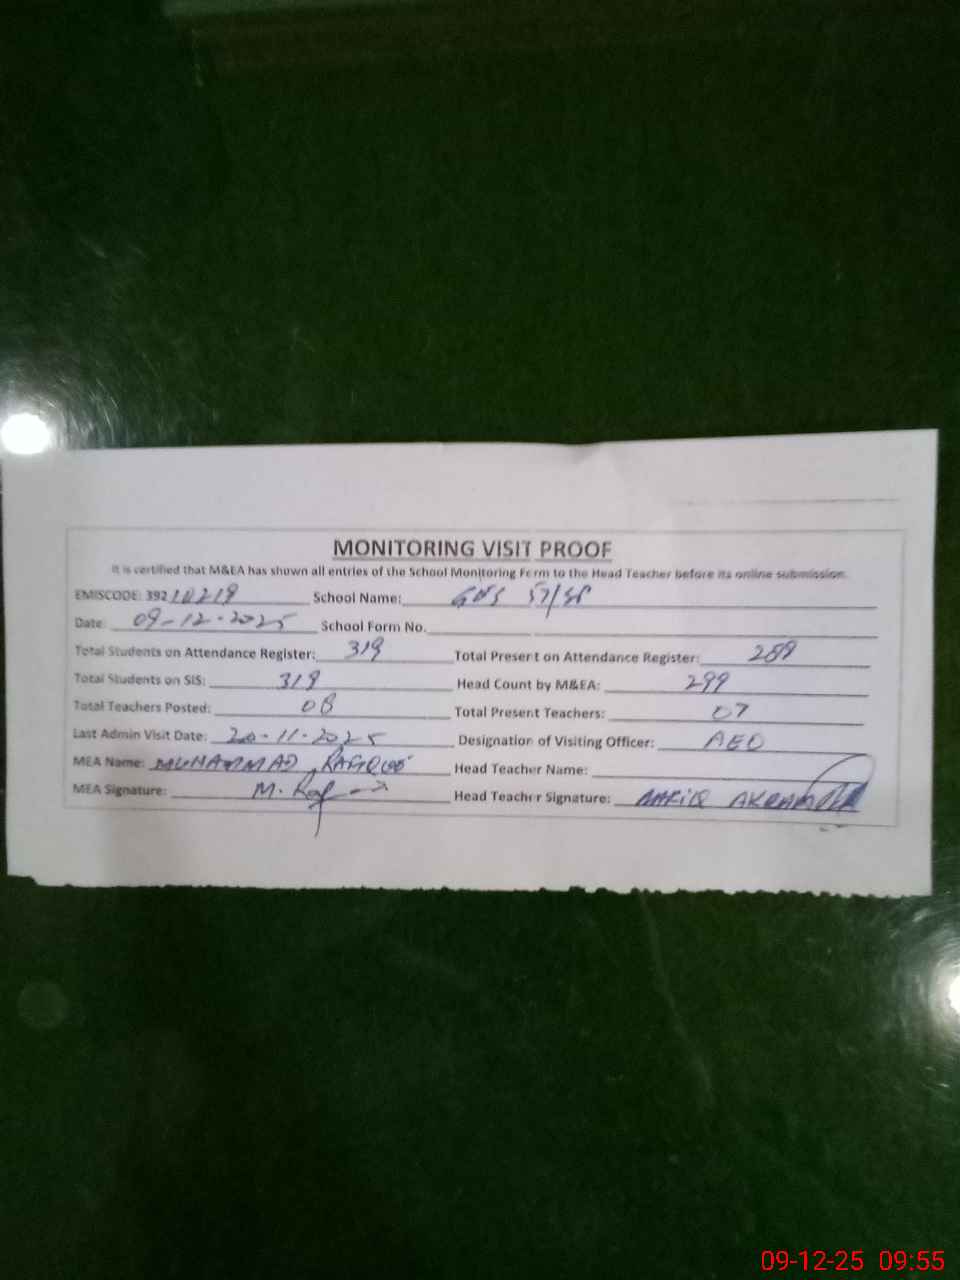 MONITORING VISIT PROOF
It is certified that M&EA has shown all entries of the School Monitoring Form to the Head Teacher before its online submission.
EMISCODE: 39210219 School Name: GHS 57/SP
Date: 09-12-2025 School Form No.
Total Students on Attendance Register: 319 Total Present on Attendance Register: 289
Total Students on SIS: 319 Head Count by M&EA: 299
Total Teachers Posted: 08 Total Present Teachers: 07
Last Admin Visit Date: 20-11-2025 Designation of Visiting Officer: AEO
MEA Name: MUHAMMAD RAFIQUE Head Teacher Name:
MEA Signature: M. Raf Head Teacher Signature: AKRAM
09-12-25 09:55